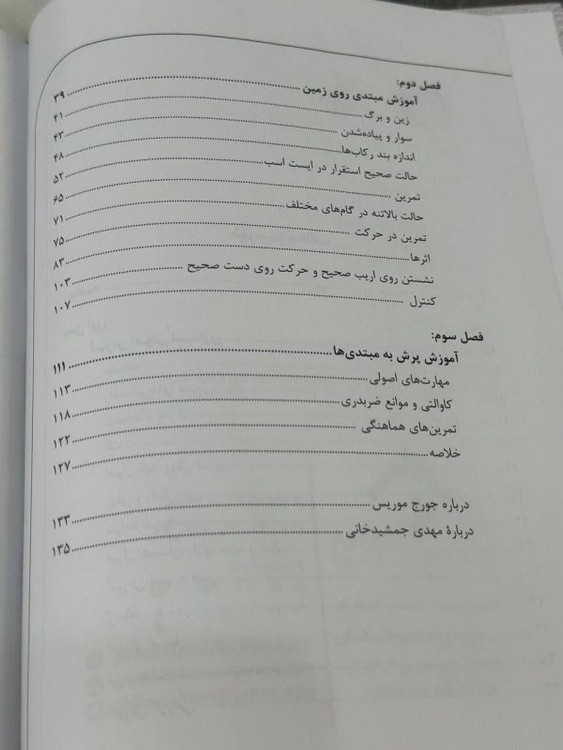 فصل دوم:
آموزش مبتدی روی زمین ........ ۳۹
زین و برگ ........ ۴۱
سوار و پیاده‌شدن ........ ۴۳
اندازه بند رکاب‌ها ........ ۴۸
حالت صحیح استقرار در ایست اسب ........ ۵۲
تمرین ........ ۶۵
حالت بالاتنه در گام‌های مختلف ........ ۷۱
تمرین در حرکت ........ ۷۵
اثرها ........ ۸۳
نشستن روی اریب صحیح و حرکت روی دست صحیح ........ ۱۰۳
کنترل ........ ۱۰۷
فصل سوم:
آموزش پرش به مبتدی‌ها ........ ۱۱۱
مهارت‌های اصولی ........ ۱۱۳
کاوالتی و موانع ضربدری ........ ۱۱۸
تمرین‌های هماهنگی ........ ۱۲۲
خلاصه ........ ۱۲۷
درباره جورج موریس ........ ۱۳۳
دربارهٔ مهدی جمشیدخانی ........ ۱۳۵